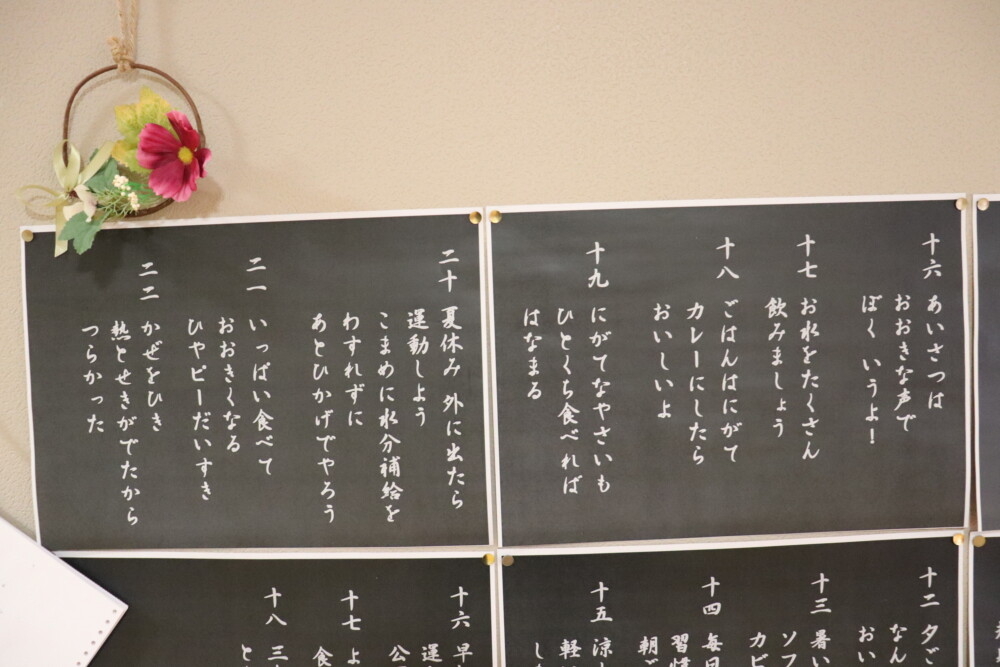 十六 あいさつは
おおきな声で
ぼく いうよ！
十七 お水をたくさん
飲みましょう
十八 ごはんはにがて
カレーにしたら
おいしいよ
十九 にがてなやさいも
ひとくち食べれば
はなまる
二十 夏休み 外に出たら
運動しよう
こまめに水分補給を
わすれずに
あとひかげでやろう
二一 いっぱい食べて
おおきくなる
ひやピーだいすき
二二 かぜをひき
熱とせきがでたから
つらかった
十二 夕
なん
おい
十三 暑い
ソフ
カビ
十四 毎日
習慣
朝ご
十五 涼
軽
した
十六 早
運
公
十七 よ
食
十八 三
と